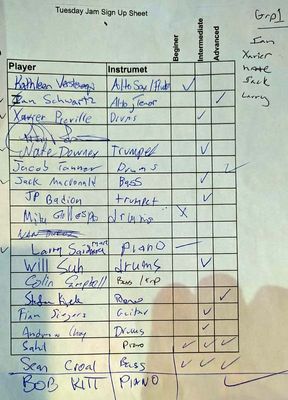 Tuesday Jam Sign Up Sheet
Grp1
Ian
Xavier
Nate
Jack
Larry
Beginer
Intermediate
Advanced
Player Instrumet
Kathleen
Ian Schwartz Alto Tenor
Xavier Breville Drums
Nate Downey Trumpet
Jacob Tanner Drums
Jack Macdonald Bass
JP Badion trumpet
Mike Gillespo drums X
Larry PIANO
Will Suh drums
Colin Campbell Bass
Piano
Finn Siegers Guitar
Andrew Drums
Sahil Piano
Sean Croal Bass
BOB KITT PIANO